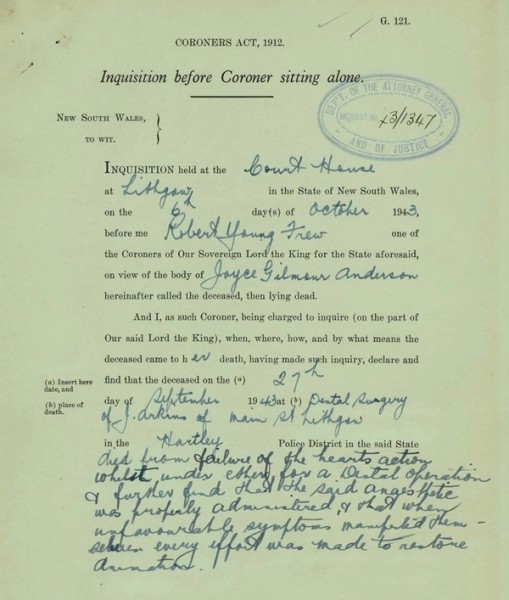 G. 121.
CORONERS ACT, 1912.
Inquisition before Coroner sitting alone.
DEPT. OF THE ATTORNEY GENERAL
INQUEST No. 43/1347
AND OF JUSTICE
NEW SOUTH WALES,
TO WIT.
INQUISITION held at the Court House
at Lithgow in the State of New South Wales,
on the 6th day(s) of October 1943,
before me Robert Young Frew one of
the Coroners of Our Sovereign Lord the King for the State aforesaid,
on view of the body of Joyce Gilmour Anderson
hereinafter called the deceased, then lying dead.
And I, as such Coroner, being charged to inquire (on the part of
Our said Lord the King), when, where, how, and by what means the
deceased came to h er death, having made such inquiry, declare and
(a) Insert here
date, and
find that the deceased on the (a) 27th
(b) place of
death.
day of September 1943 at (b) Dental Surgery
of J. Arkins of main St Lithgow
in the Hartley Police District in the said State
died from failure of the hearts action
whilst under ether for a Dental Operation
& further find that the said anaesthetic
was properly administered, & that when
unfavourable symptoms manifested them-
selves every effort was made to restore
animation.